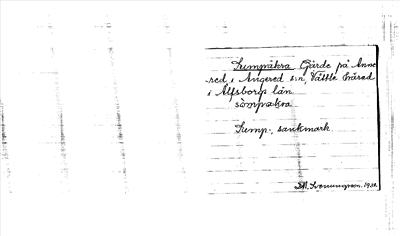 Sumpåkra Gärde på Anne
red i Angered s:n, Vättle härad
i Älfsborgs län.
sòmpåkra
Sump-, sankmark.
1931.